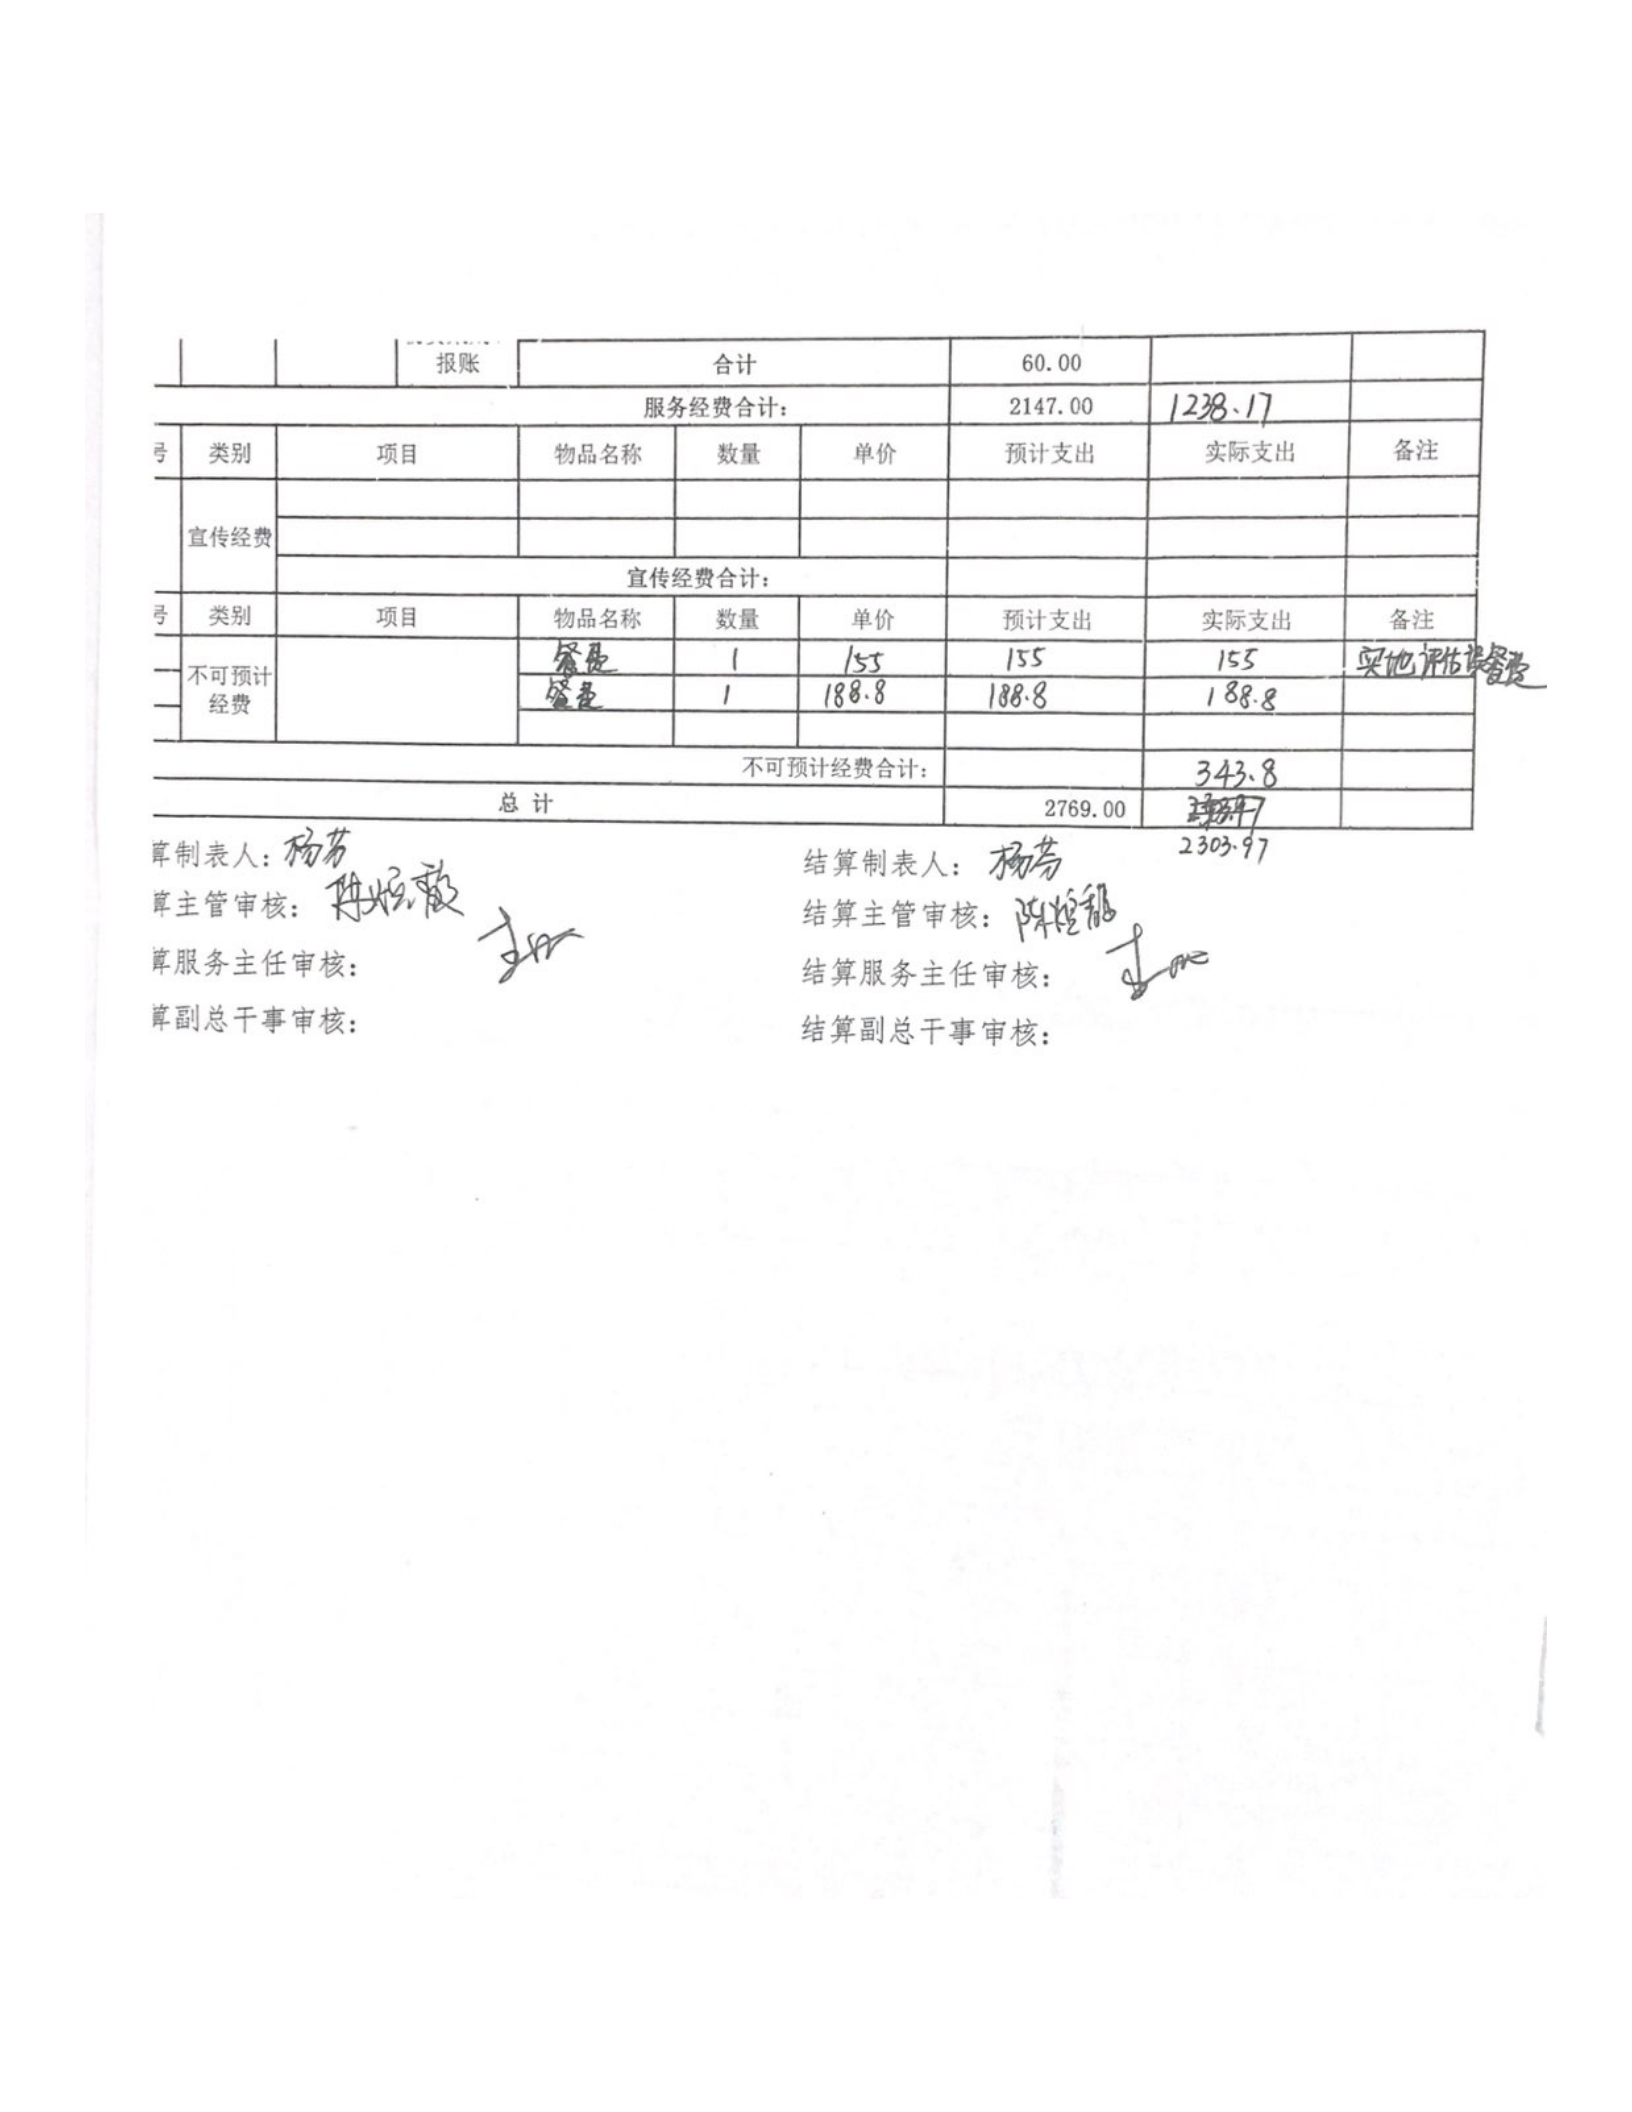 报账 合计 60.00
服务经费合计： 2147.00 1238.17
号 类别 项目 物品名称 数量 单价 预计支出 实际支出 备注
宣传经费
宣传经费合计：
号 类别 项目 物品名称 数量 单价 预计支出 实际支出 备注
餐费 1 155 155 155 实地评估误餐费
不可预计
经费
餐费 1 188.8 188.8 188.8
不可预计经费合计： 343.8
总 计 2769.00
2303.97
算制表人：杨芬 结算制表人：杨芬
算主管审核：陈煊 结算主管审核：陈煊
算服务主任审核： 结算服务主任审核：
算副总干事审核： 结算副总干事审核：